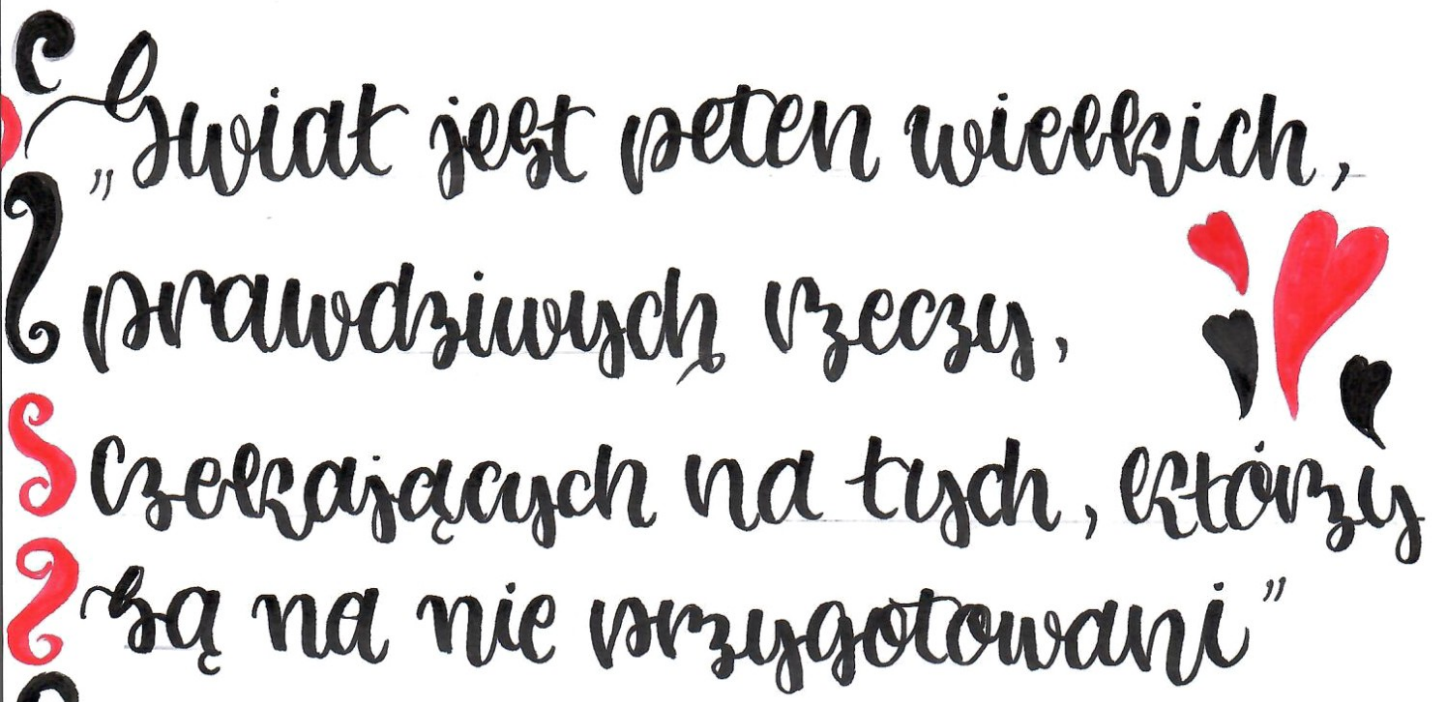 „Świat jest pełen wielkich,
prawdziwych rzeczy,
czekających na tych, którzy
są na nie przygotowani”